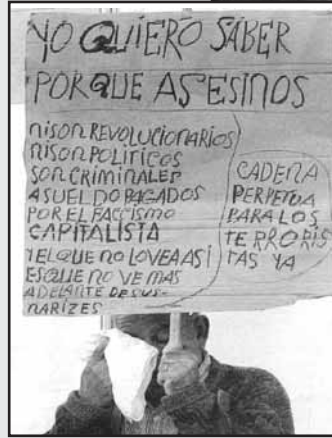 YO QUIERO SABER
PORQUE ASESINOS
NISON REVOLUCIONARIOS
NISON POLITICOS
SON CRIMINALES
ASUELDO PAGADOS
POR EL FACCISMO
CAPITALISTA
YELQUE NO LOVEA ASI
ES QUE NO VE MAS
ADELANTE DE SUS-
NARIZES
CADENA
PERPETUA
PARA LOS
TERRORIS
TAS YA